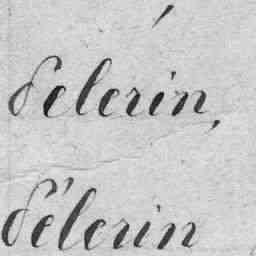 Pelerin,
Pélerin